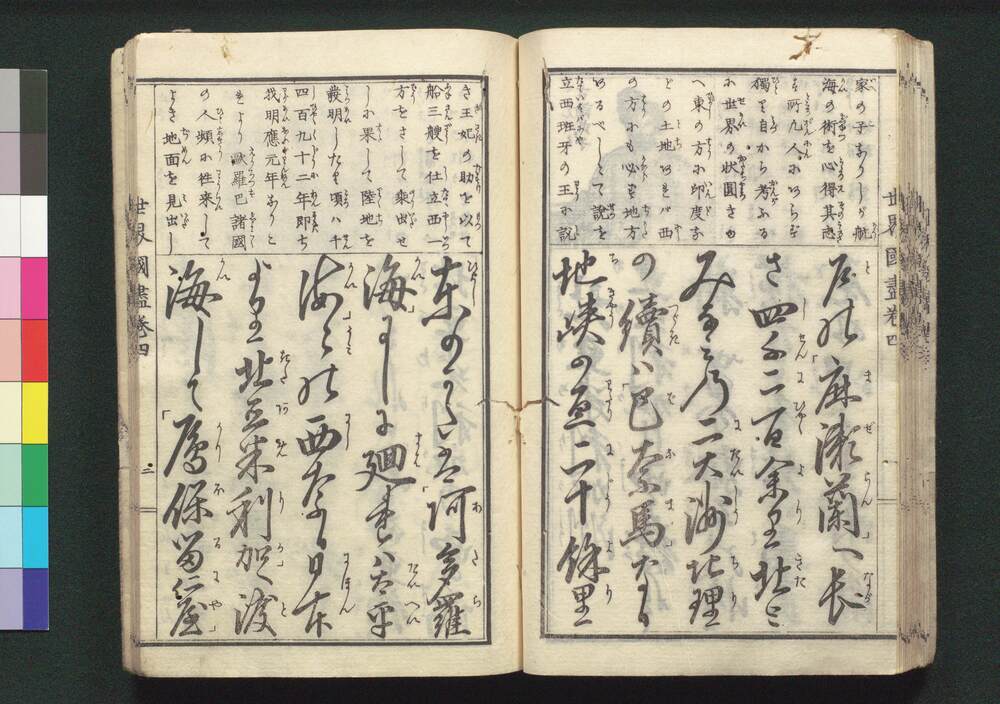 世界國盡巻四
家の子なりしが航
海の術を心得其志
す所凡人にあらず
獨り自から考ふる
に世界の状圓きゆ
へ東の方に印度な
どの土地あらば西
の方にも必ず地方
あるべしとて説を
立西班牙の王に説
戸の「麻瀬蘭」へ長
さ四千二百余里北と
みなみの二大洲地理
の續は「巴奈馬」なる
地峡の亘二十餘里
き王妃の助を以て
船三艘を仕立西一
方をさして乗出せ
しに果して陸地を
發明したる頃は千
四百九十二年即ち
我明應元年なりと
是より 歐羅巴諸國
の人頻に往来して
よき地面を見出し
東のかたは「阿多羅
海」にしに廻れは太平
海」うみの西なる日本
より北亜米利加へ渡
海して「雁保留仁屋」
世界國盡巻四
二